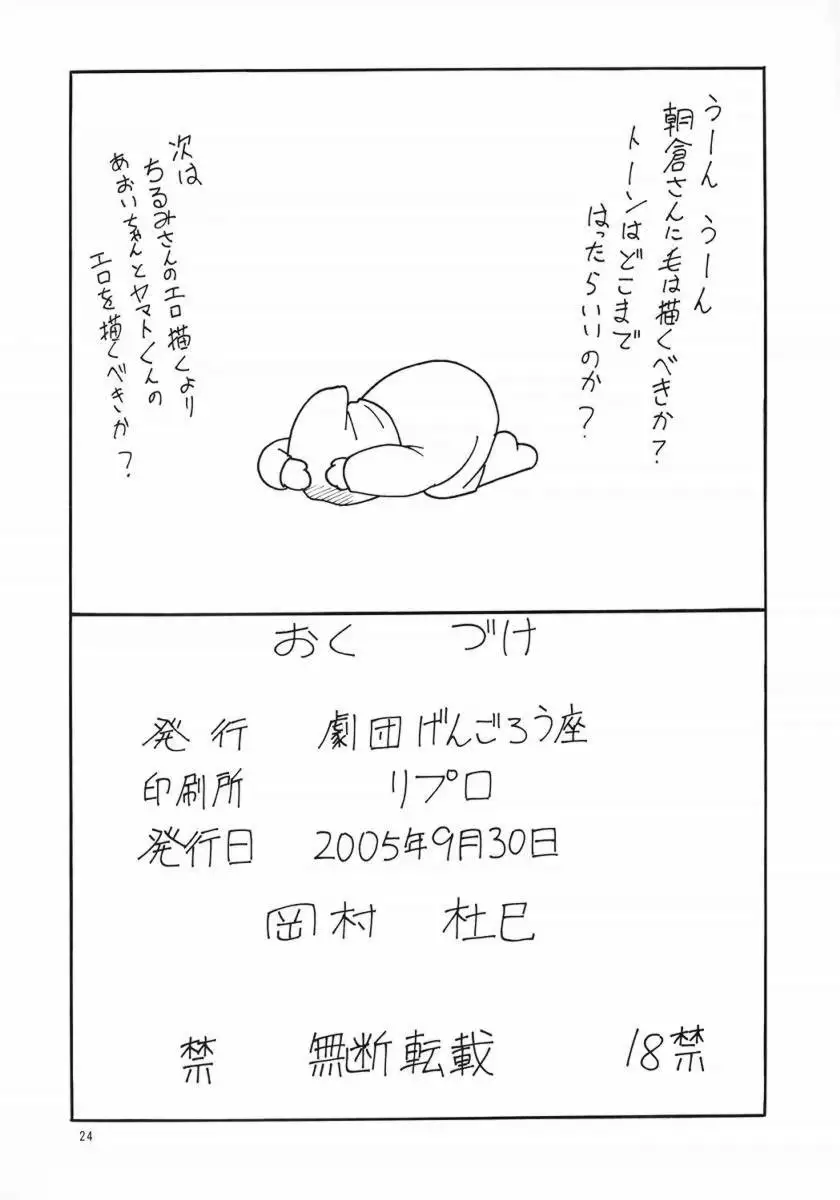 うーん うーん
朝倉さんに毛は描くべきか?
トーンはどこまで
はったらいいのか?
次は
ちるみさんのエロ描くより
あおいちゃんとヤマトくんの
エロを描くべきか?
おくづけ
発行 劇団げんごろう座
印刷所 リプロ
発行日 2005年9月30日
岡村 杜巳
禁 無断転載 18禁
24